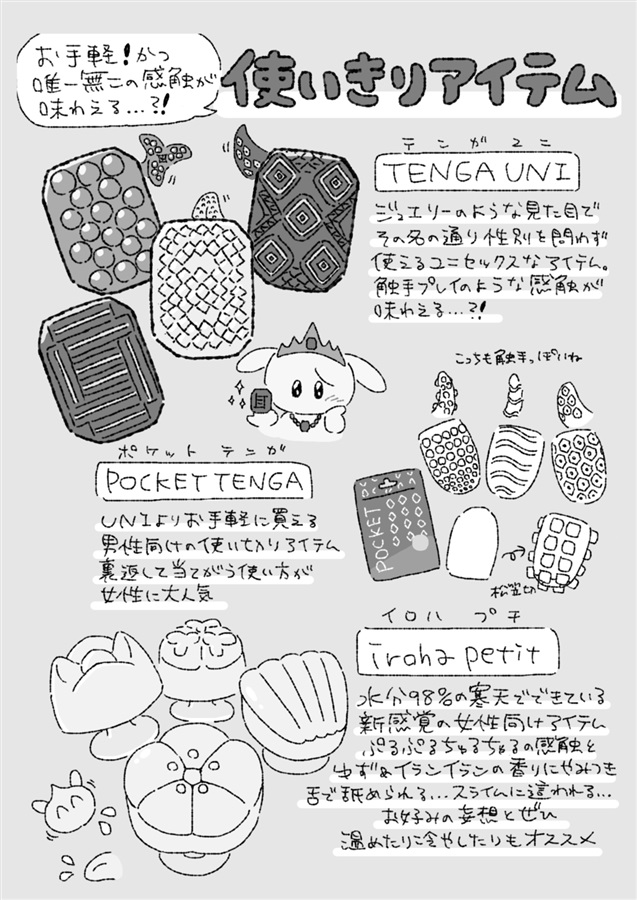 お手軽!かつ
唯一無二の感触が
味わえる…?!
使いきりアイテム
テンガユニ
TENGA UNI
ジュエリーのような見た目で
その名の通り性別を問わず
使えるユニセックスなアイテム。
触手プレイのような感触が
味わえる…?!
こっちも触手っぽいね
ポケットテンガ
POCKET TENGA
UNIよりお手軽に買える
男性向けの使い切りアイテム
裏返して当てがう使い方が
女性に大人気
POCKET
松笠切
イロハ プチ
iroha petit
水分98%の寒天でできている
新感覚の女性向けアイテム
ぷるぷるちゅるちゅるの感触と
ゆず&イランイランの香りにやみつき
舌で舐められる…スライムに這われる…
お好みの妄想とぜひ
温めたり冷やしたりもオススメ